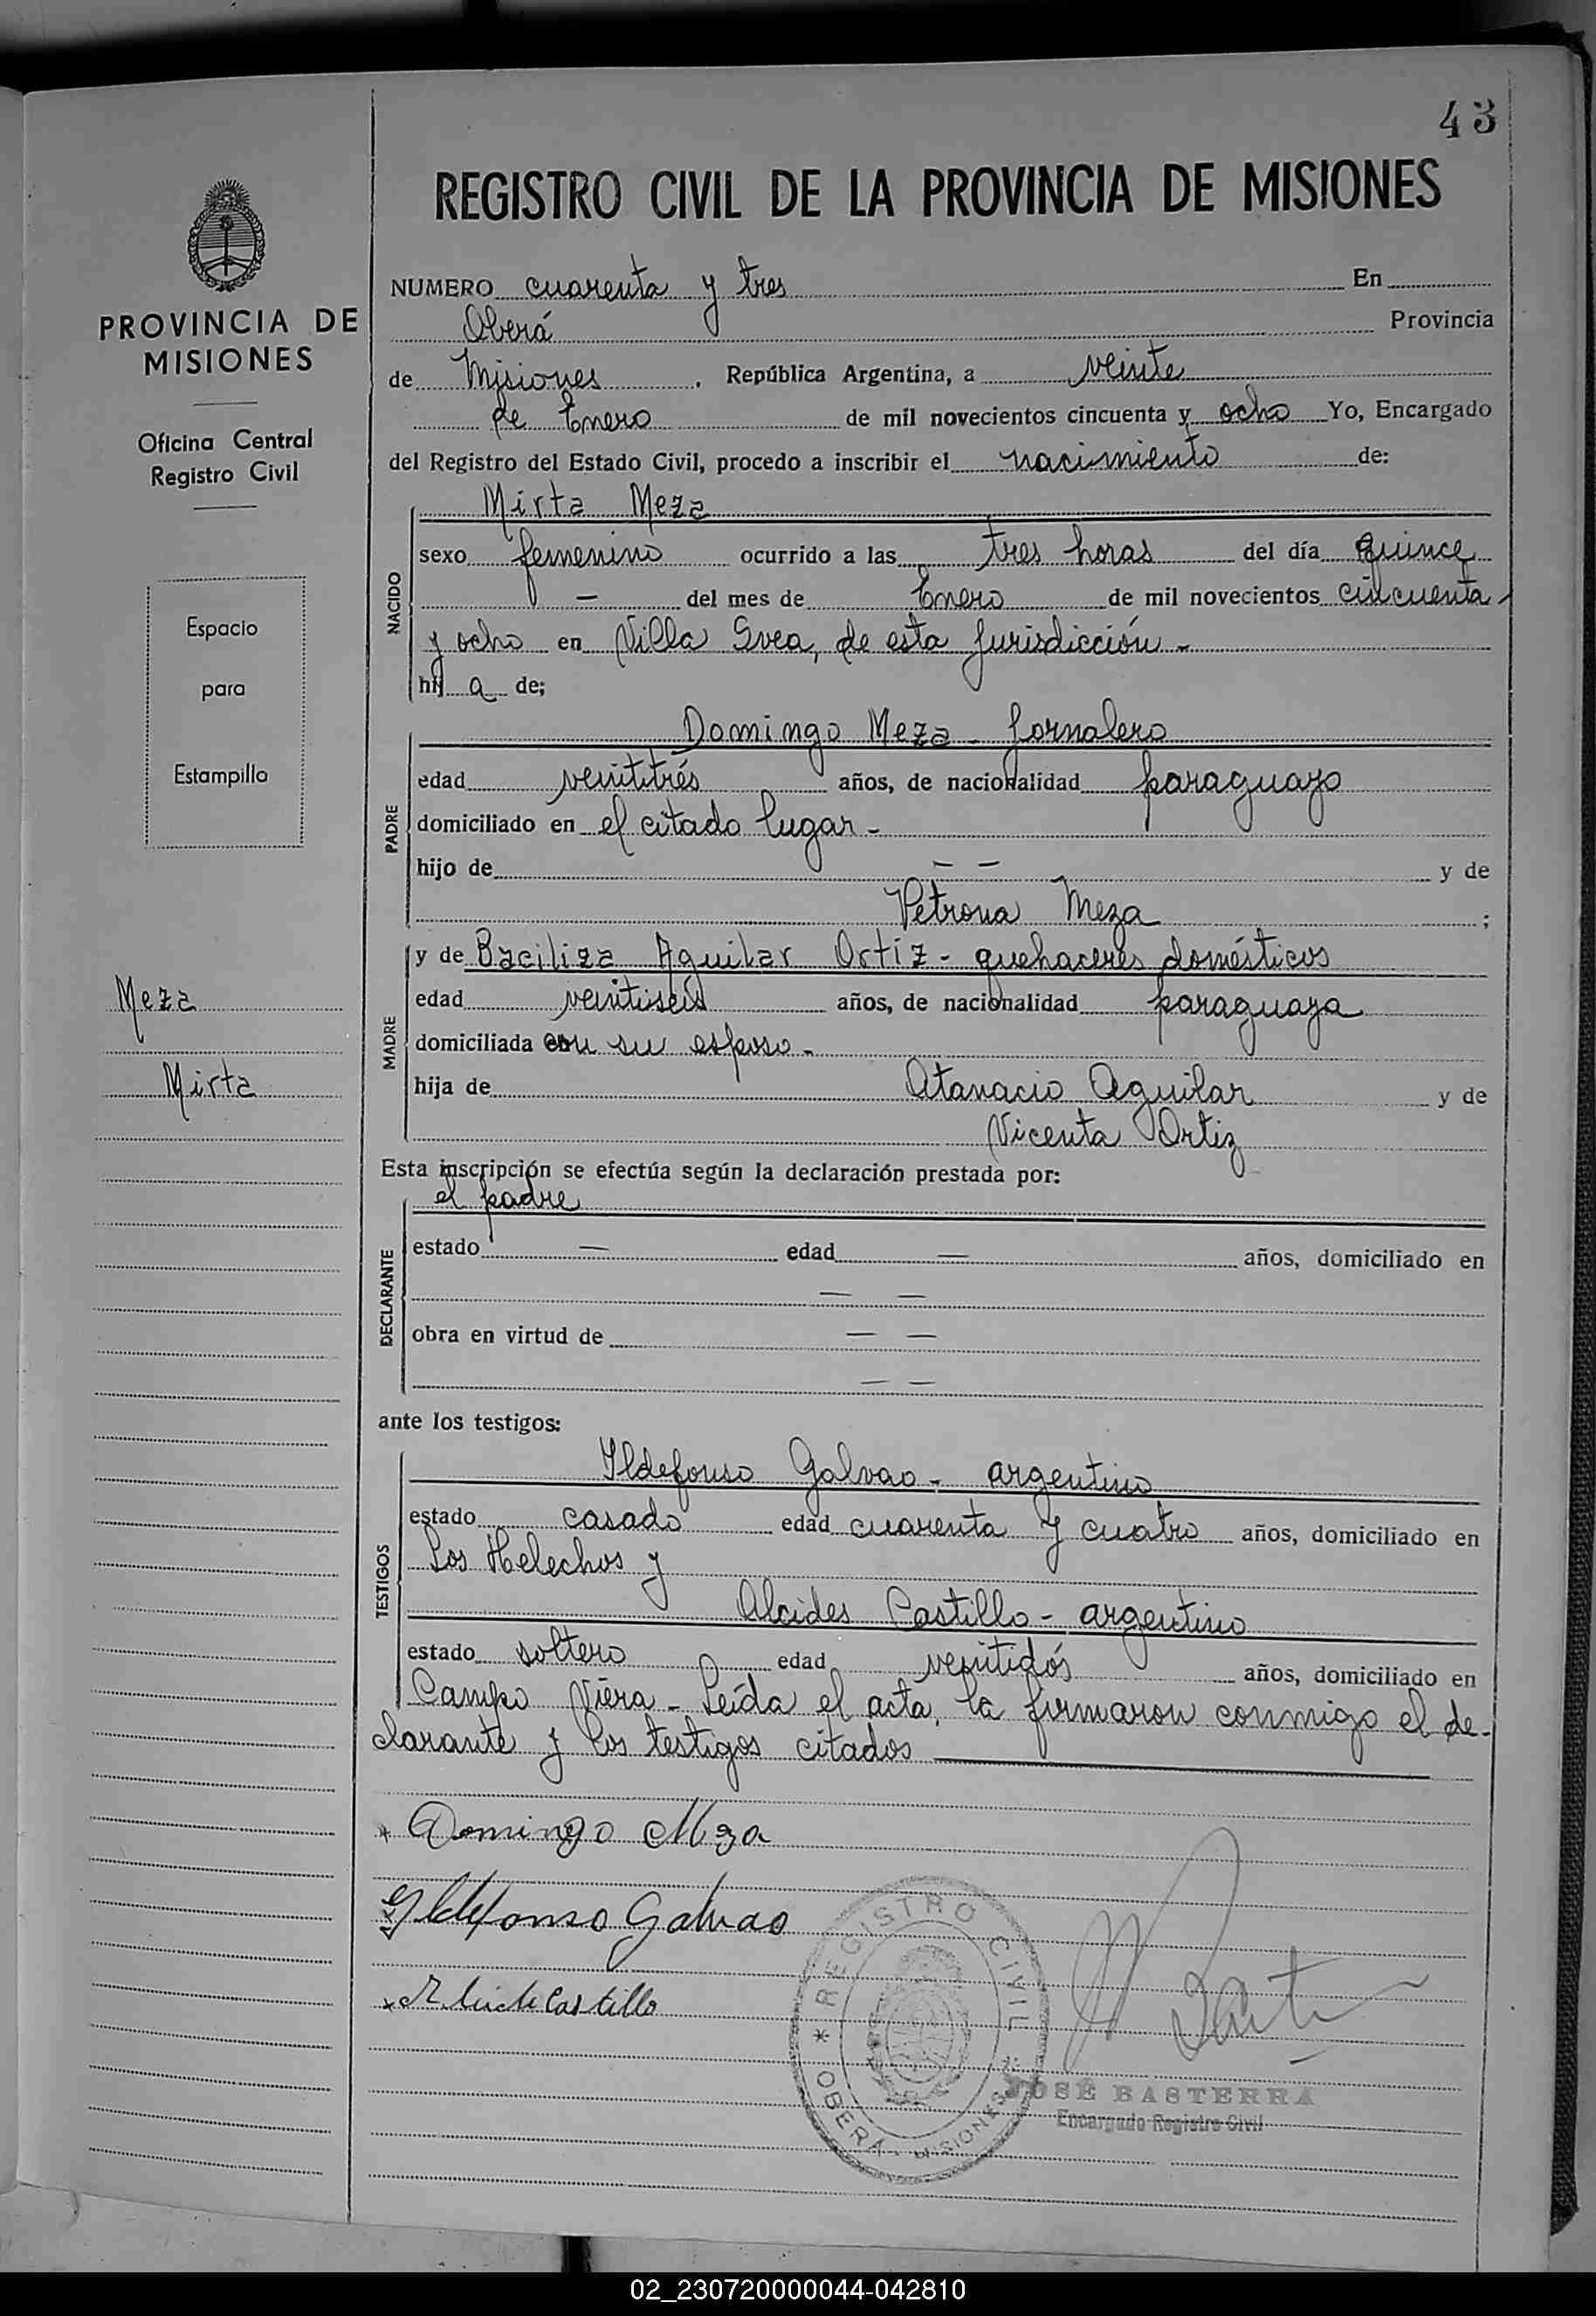 43
REGISTRO CIVIL DE LA PROVINCIA DE MISIONES
PROVINCIA DE
MISIONES
Oficina Central
Registro Civil
Espacio
para
Estampilla
Meza
Mirta
NUMERO cuarenta y tres En
Oberá Provincia
de Misiones, República Argentina, a veinte
de Enero de mil novecientos cincuenta y ocho Yo, Encargado
del Registro del Estado Civil, procedo a inscribir el nacimiento de:
NACIDO
Mirta Meza
sexo femenino ocurrido a las tres horas del día quince
— del mes de Enero de mil novecientos cincuenta
y ocho en Villa Svea, de esta jurisdicción -
hij a de;
PADRE
Domingo Meza - Jornalero
edad veintitrés años, de nacionalidad paraguayo
domiciliado en el citado lugar -
hijo de — — y de
Petrona Meza ;
MADRE
y de Baciliza Aguilar Ortiz - quehaceres domésticos
edad veintiseis años, de nacionalidad paraguaya
domiciliada con su esposo -
hija de Atanacio Aguilar y de
Vicenta Ortiz
Esta inscripción se efectúa según la declaración prestada por:
DECLARANTE
el padre
estado — edad — años, domiciliado en
— —
obra en virtud de — —
— —
ante los testigos:
TESTIGOS
Ildefonso Galvao - argentino
estado casado edad cuarenta y cuatro años, domiciliado en
Los Helechos y
Alcides Castillo - argentino
estado soltero edad veintidós años, domiciliado en
Campo Viera - Leída el acta, la firmaron conmigo el de-
clarante y los testigos citados
Domingo Meza
Ildefonso Galvao
Castillo
REGISTRO CIVIL
* OBERÁ - MISIONES *
JOSÉ BASTERRA
Encargado Registro Civil
02_230720000044-042810